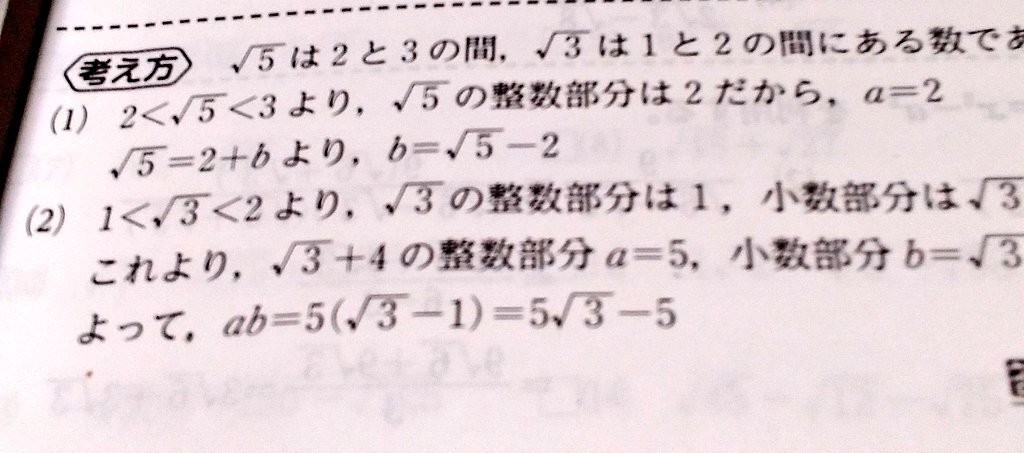 考え方 √5は2と3の間，√3は1と2の間にある数であ
(1) 2<√5<3より，√5の整数部分は2だから，a=2
√5=2+bより，b=√5−2
(2) 1<√3<2より，√3の整数部分は1，小数部分は√3
これより，√3+4の整数部分a=5，小数部分b=√3
よって，ab=5(√3−1)=5√3−5